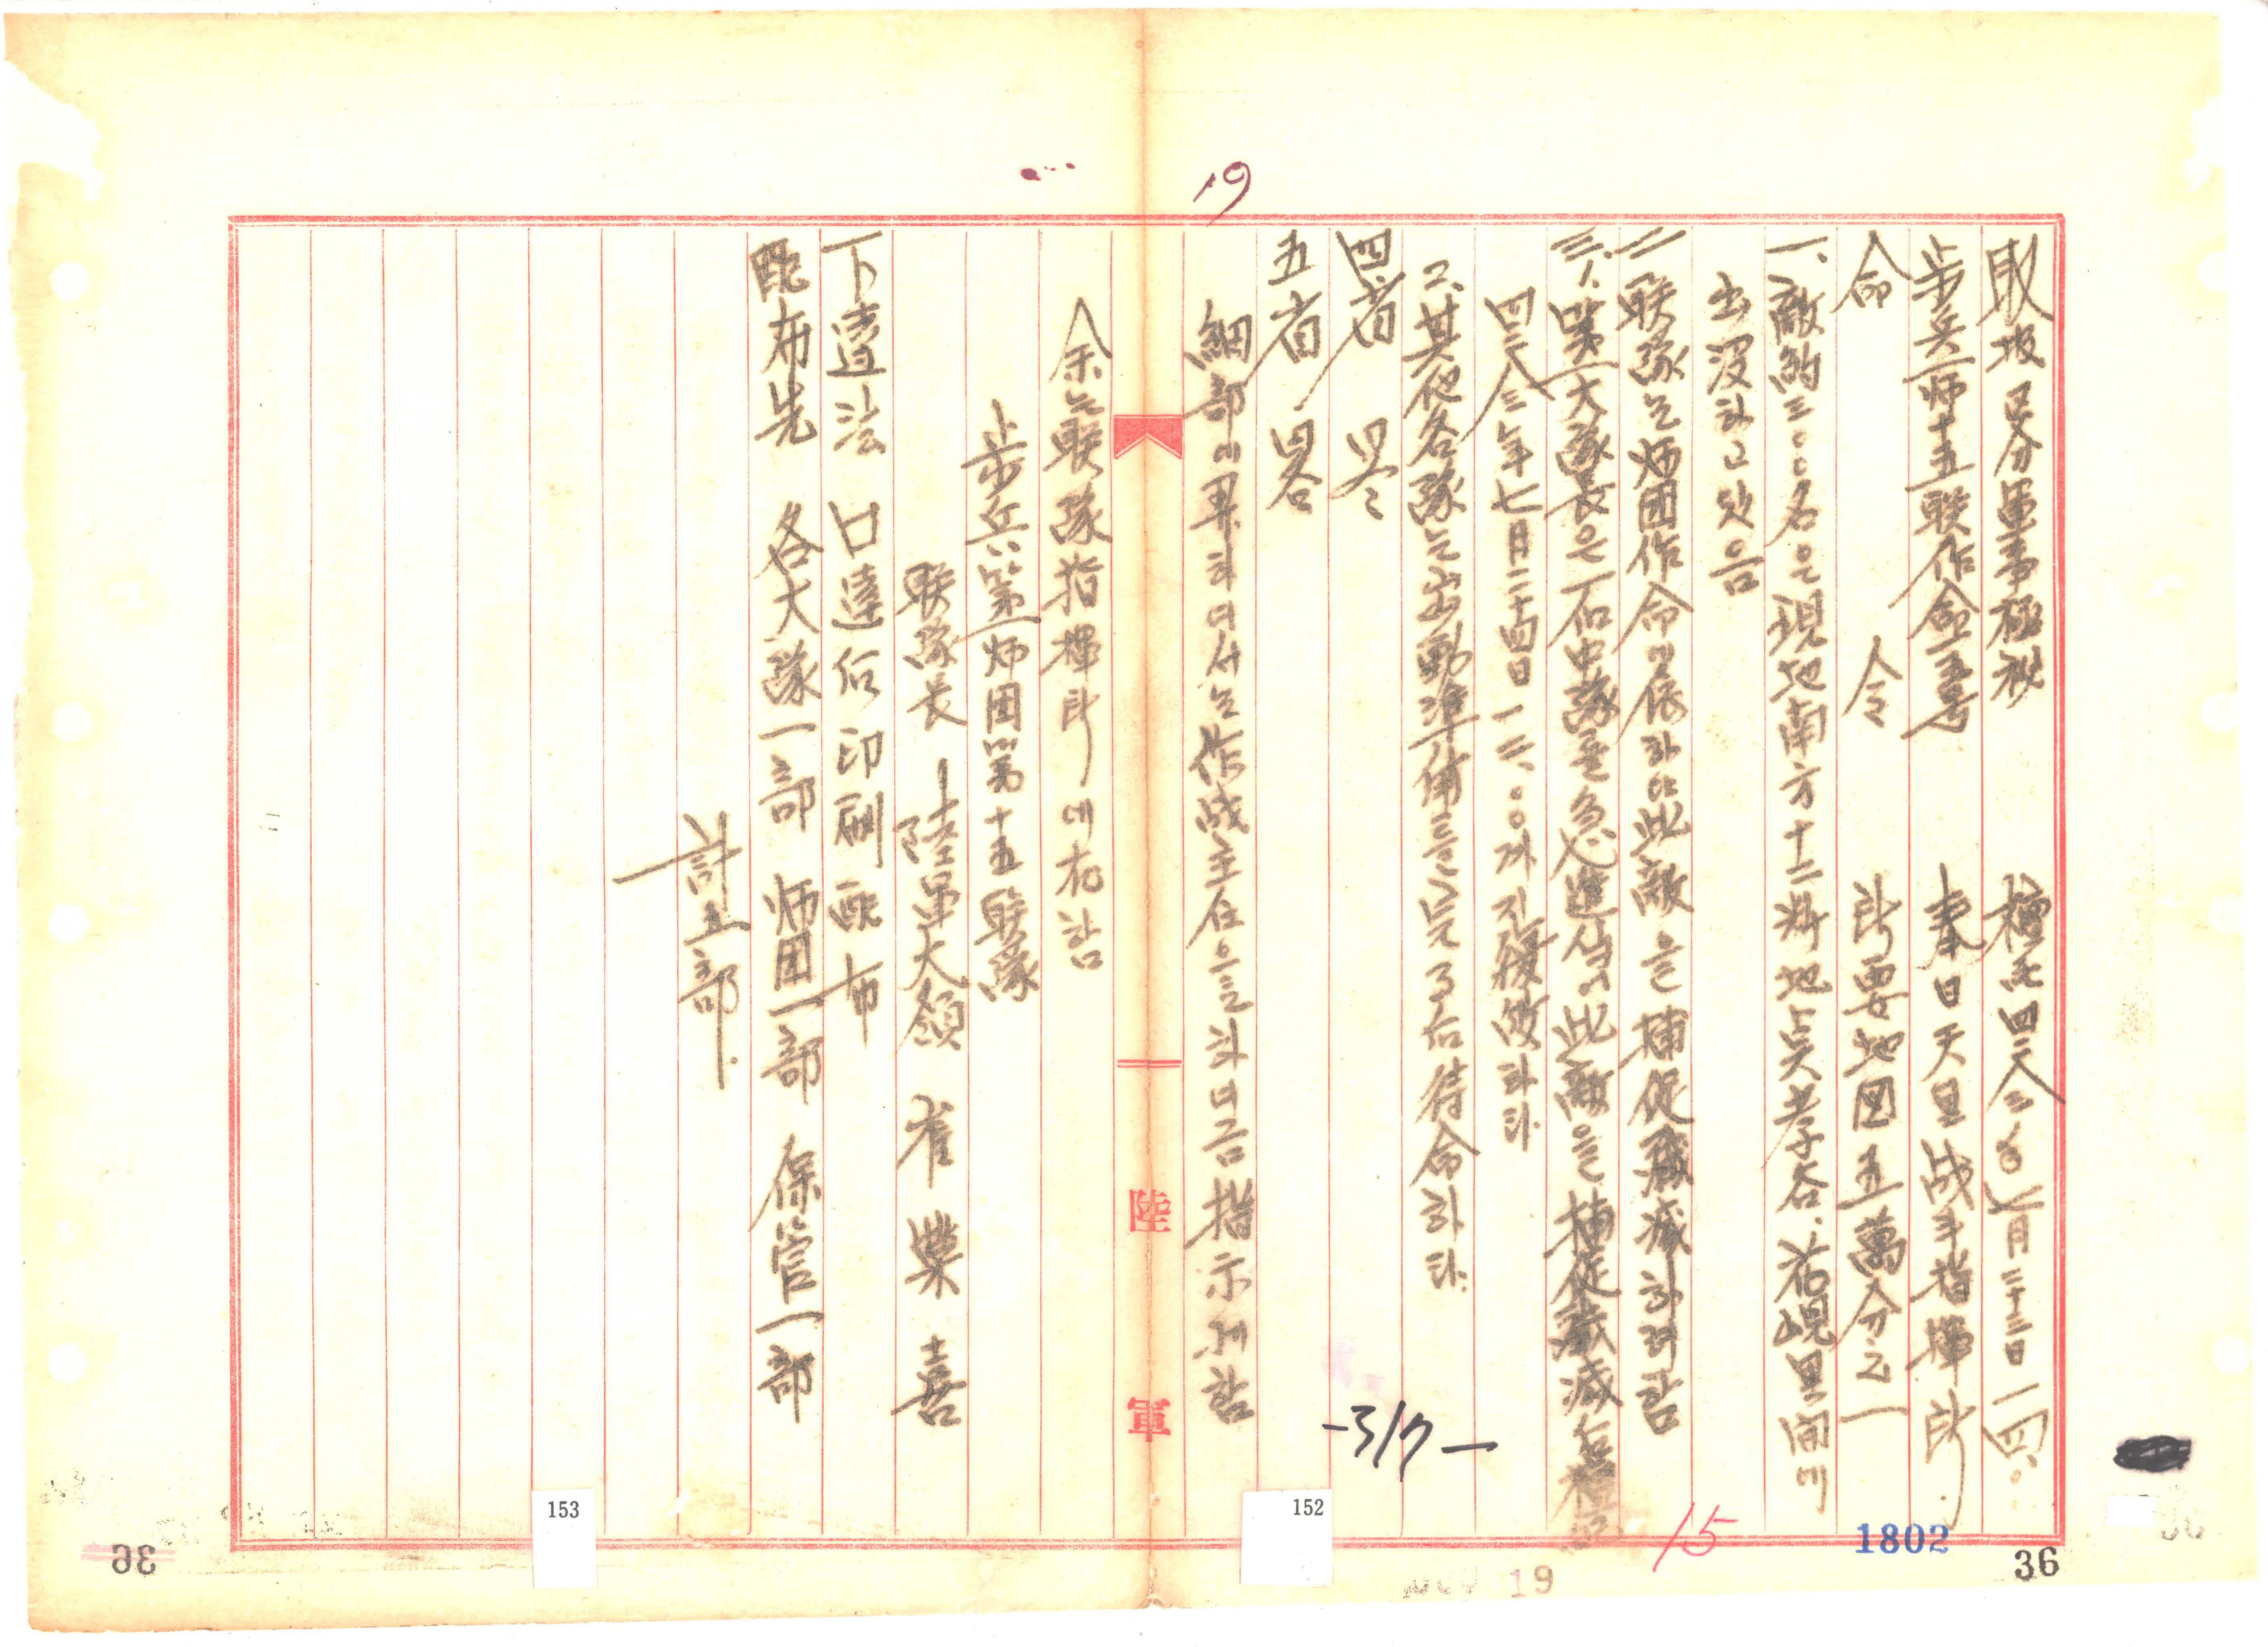 19
取扱区分軍事極秘 檀紀四二八三年七月二十三日一四.〇
步兵一師十五聯作命五号 奉日天里战斗指揮所
命 令 所要地図五萬分之一
一、敵約三〇〇名은現地南方十二粁地点孝谷.花峴里間에
出没하고잇음
二 聯隊는师団作命에依하야此敵을捕促殱滅하려함
三、1.第一大隊長은一石中隊를急進식혀此敵을捕促殱滅后
四二八三年七月二十四日一二.〇〇까지復皈하라
2.其他各隊는出動準備를完了后待命하라.
四.省 畧
五省.畧
細部에異하여서는作战主任을하여금指示케함
余는聯隊指揮所에在함
步兵第一师団第十五聯隊
聯隊長 陸軍大領 崔榮喜
下達法 口達后印刷配布
配布先 各大隊一部 师団一部 保管一部
計五部.
陸軍
-317-
153
152
15
1802
36
19
36